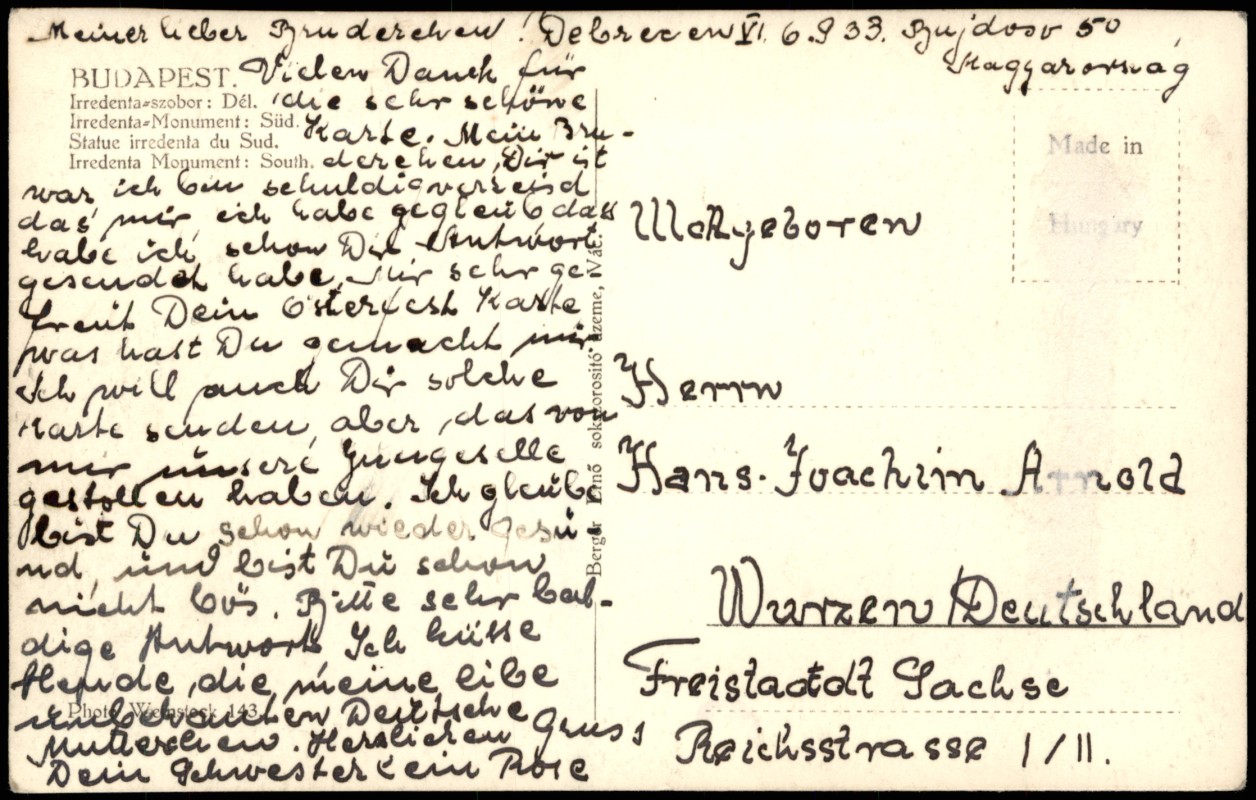 Meiner lieber Bruderchen! Debrecen VI. 6. 933. Bujdoso 50
Magyarország
BUDAPEST.
Irredenta-szobor: Dél.
Irredenta-Monument: Süd.
Statue irredenta du Sud.
Irredenta Monument: South.
Vielen Danck für
die sehr schöne
Karte. Mein Bru-
derchen, Dir ist
war, ich bin schuldig
das mir, ich habe gegleübdass
habe ich, schon Dir Antwort
gesendet habe, Mir sehr ge-
freüt Dein Osterfest Karte
was hast Du gemacht mir
ich will auch Dir solche
Karte senden, aber, das von
mir ünsere Jungeselle
gestollen haben. Ich gleübe
bist Du schon wieder gesü-
nd, ünd bist Dü schon
nicht bös. Bitte sehr bal-
dige Antwort Ich küsse
Hende, die meine libe
Deütsche
Mutterchen. Herzlichen Gruss
Dein Schwesterlein Rose
Photo Weinstock 143
Berger Ernő sokszorosító üzeme, Vác.
Made in
Hungary
Herrn
Hans-Joachim Arnold
Wurzen Deutschland
Freistaatdt Sachse
Reichsstrasse 1/II.